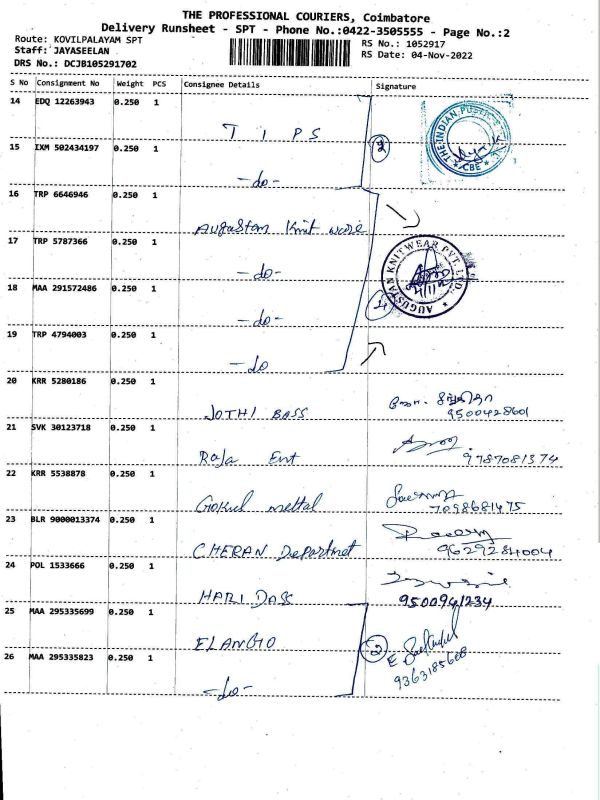 THE PROFESSIONAL COURIERS, Coimbatore
Delivery Runsheet - SPT - Phone No.:0422-3505555 - Page No.:2
Route: KOVILPALAYAM SPT
RS No.: 1052917
Staff: JAYASEELAN
RS Date: 04-Nov-2022
DRS No.: DCJB105291702
S No Consignment No Weight PCS Consignee Details Signature
14 EDQ 12263943 0.250 1
T I P S
THE INDIAN PUBLIC CBE
15 IXM 502434197 0.250 1
2
-do-
16 TRP 6646946 0.250 1
Augastan Knit ware
17 TRP 5787366 0.250 1
-do-
AUGUSTAN KNITWEAR PVT. LTD.
18 MAA 291572486 0.250 1
4
-do-
19 TRP 4794003 0.250 1
-do
20 KRR 5280186 0.250 1
JOTHI BASS
9500428601
21 SVK 30123718 0.250 1
Raja Ent
9787081374
22 KRR 5538878 0.250 1
Gokul mettal
7098681475
23 BLR 9000013374 0.250 1
CHERAN Departmet
9629284004
24 POL 1533666 0.250 1
HARI DASS
9500941234
25 MAA 295335699 0.250 1
ELANGO
2
26 MAA 295335823 0.250 1
-do-
9363185608